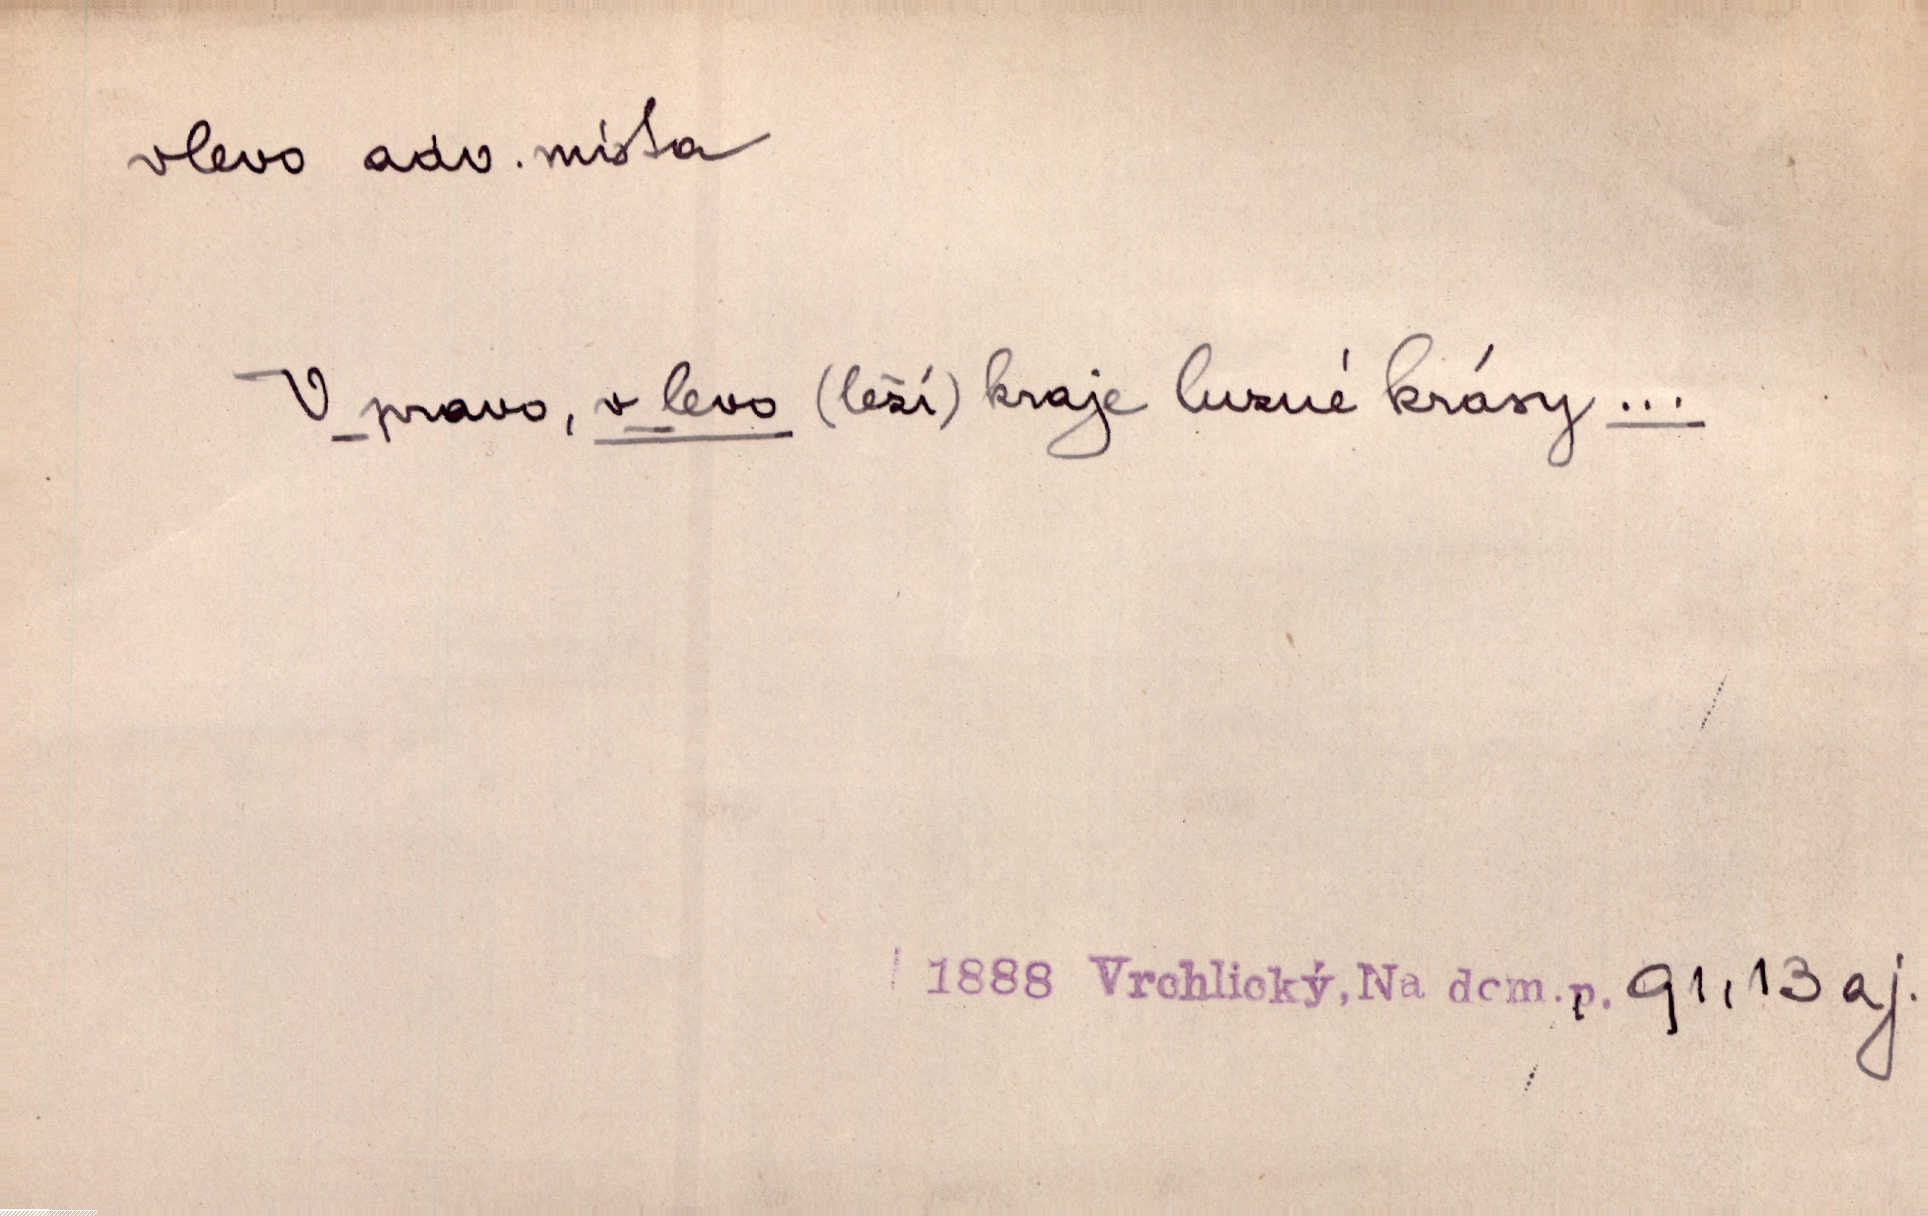 vlevo adv. místa
V pravo, v levo (leží) kraje luzné krásy ...
1888 Vrchlický, Na dom. p. 91, 13 aj.